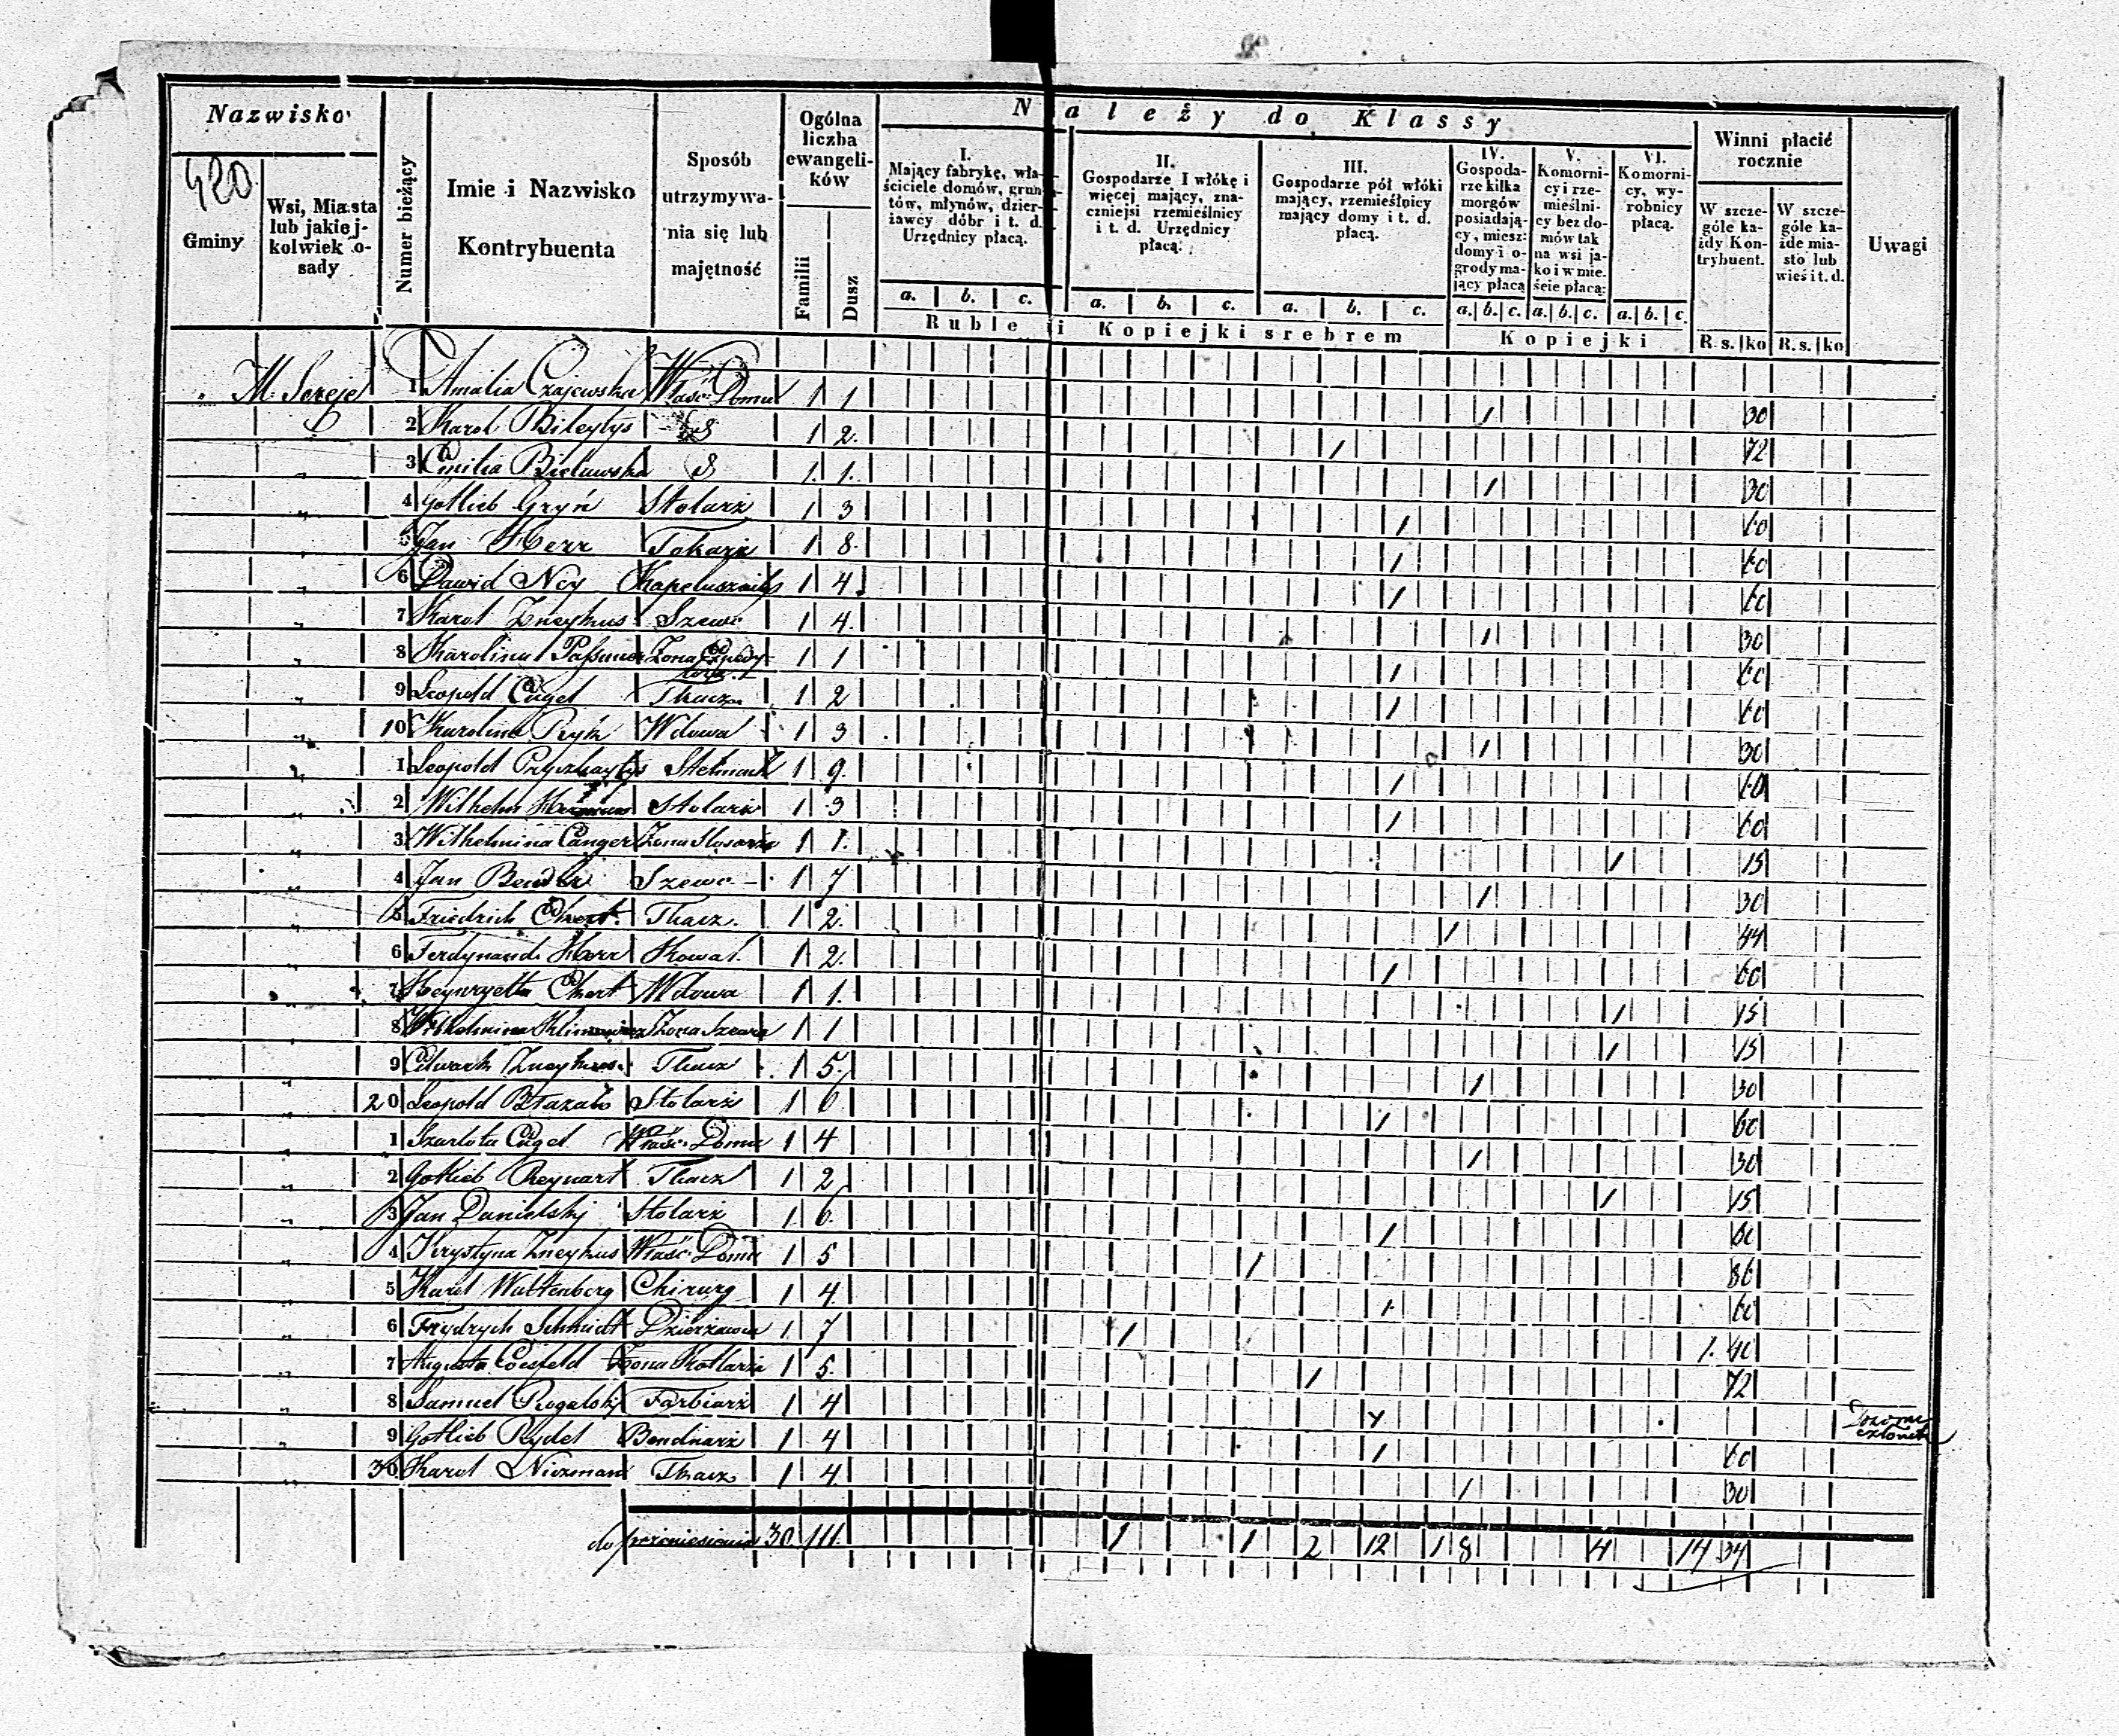 Nazwisko
420.
Gminy
Wsi, Miasta lub jakiej-kolwiek o-sady
Numer bieżący
Imie i Nazwisko Kontrybuenta
Sposób utrzymywa-nia się lub majętność
Ogólna liczba ewangeli-ków
Familii
Dusz
Należy do Klassy
I. Mający fabrykę, wła-ściciele domów, grun-tów, młynów, dzier-żawcy dóbr i t. d. Urzędnicy płacą.
II. Gospodarze I włókę i więcej mający, zna-czniejsi rzemieślnicy i t. d. Urzędnicy płacą.
III. Gospodarze pół włóki mający, rzemieślnicy mający domy i t. d. płacą.
IV. Gospoda-rze kilka morgów posiadają-cy, miesz: domy i o-grody ma-jący płacą
V. Komorni-cy i rze-mieślni-cy bez do-mów tak na wsi ja-ko i w mie-ście płacą:
VI. Komorni-cy, wy-robnicy płacą.
Winni płacić rocznie
W szcze-góle ka-żdy Kon-trybuent.
W szcze-góle ka-żde mia-sto lub wieś i t. d.
Uwagi
a. b. c. a. b. c. a. b. c. a. b. c. a. b. c. a. b. c.
Ruble i Kopiejki srebrem Kopiejki R. s. ko R. s. ko
M. Sereje 1 Amalia Czajewska Właśc: Domu 1 1 1 30
2 Karol Bileytys 1 2. 1 72
3 Emilia Bielawska 1. 1. 1 30
4 Gotlieb Gryń Stolarz 1 3 1 60
5 Jan Herr Tokarz 1 8. 1 60
6 Dawid Ney Kapelusznik 1 4. 1 60
7 Karol Zneykus Szewc 1 4. 1 30
8 Karolina Żona 1 1 1 60
9 Leopold Engel Tkacz 1 2 1 60
10 Karolina Wdowa 1 3 1 30
1 Leopold Stelmach 1 9. 1 60
2 Wilhelm Stolarz 1 3 1 60
3 Wilhelmina Langer Żona Slosarza 1 1. 1 15
4 Jan Bender Szewc 1 7 1 30
5 Friedrich Ehert Tkacz. 1 2. 1 44
6 Ferdynand Herr Kowal. 1 2. 1 60
7 Heynryetta Ehert Wdowa 1 1. 1 15
8 Wilhelmina Klimowicz Żona Szewca 1 1 1 15
9 Edwart Zneykus Tkacz 1 5. 1 30
20 Leopold Stolarz 1 6 1 60
1 Szarlota Engel Właśc: Domu 1 4 1 30
2 Gotlieb Reynart Tkacz 1 2 1 15
3 Jan Danielskj Stolarz 1 6. 1 60
4 Krystyna Zneykus Właśc: Domu 1 5 1 86
5 Karol Wattenberg Chirurg 1 4. 1. 60
6 Frydrych Schmidt Dzierżawca 1 7 1 1. 40
7 Augusta Coesfeld Żona Kotlarza 1 5. 1 72
8 Samuel Rogalskj Farbiarz 1 4
9 Gotlieb Rydel Bendnarz 1 4 1 60
30 Karol Niezman Tkacz 1 4. 1 30
do przeniesienia 30 111. 1 1 2 12 1 8 4 14 34